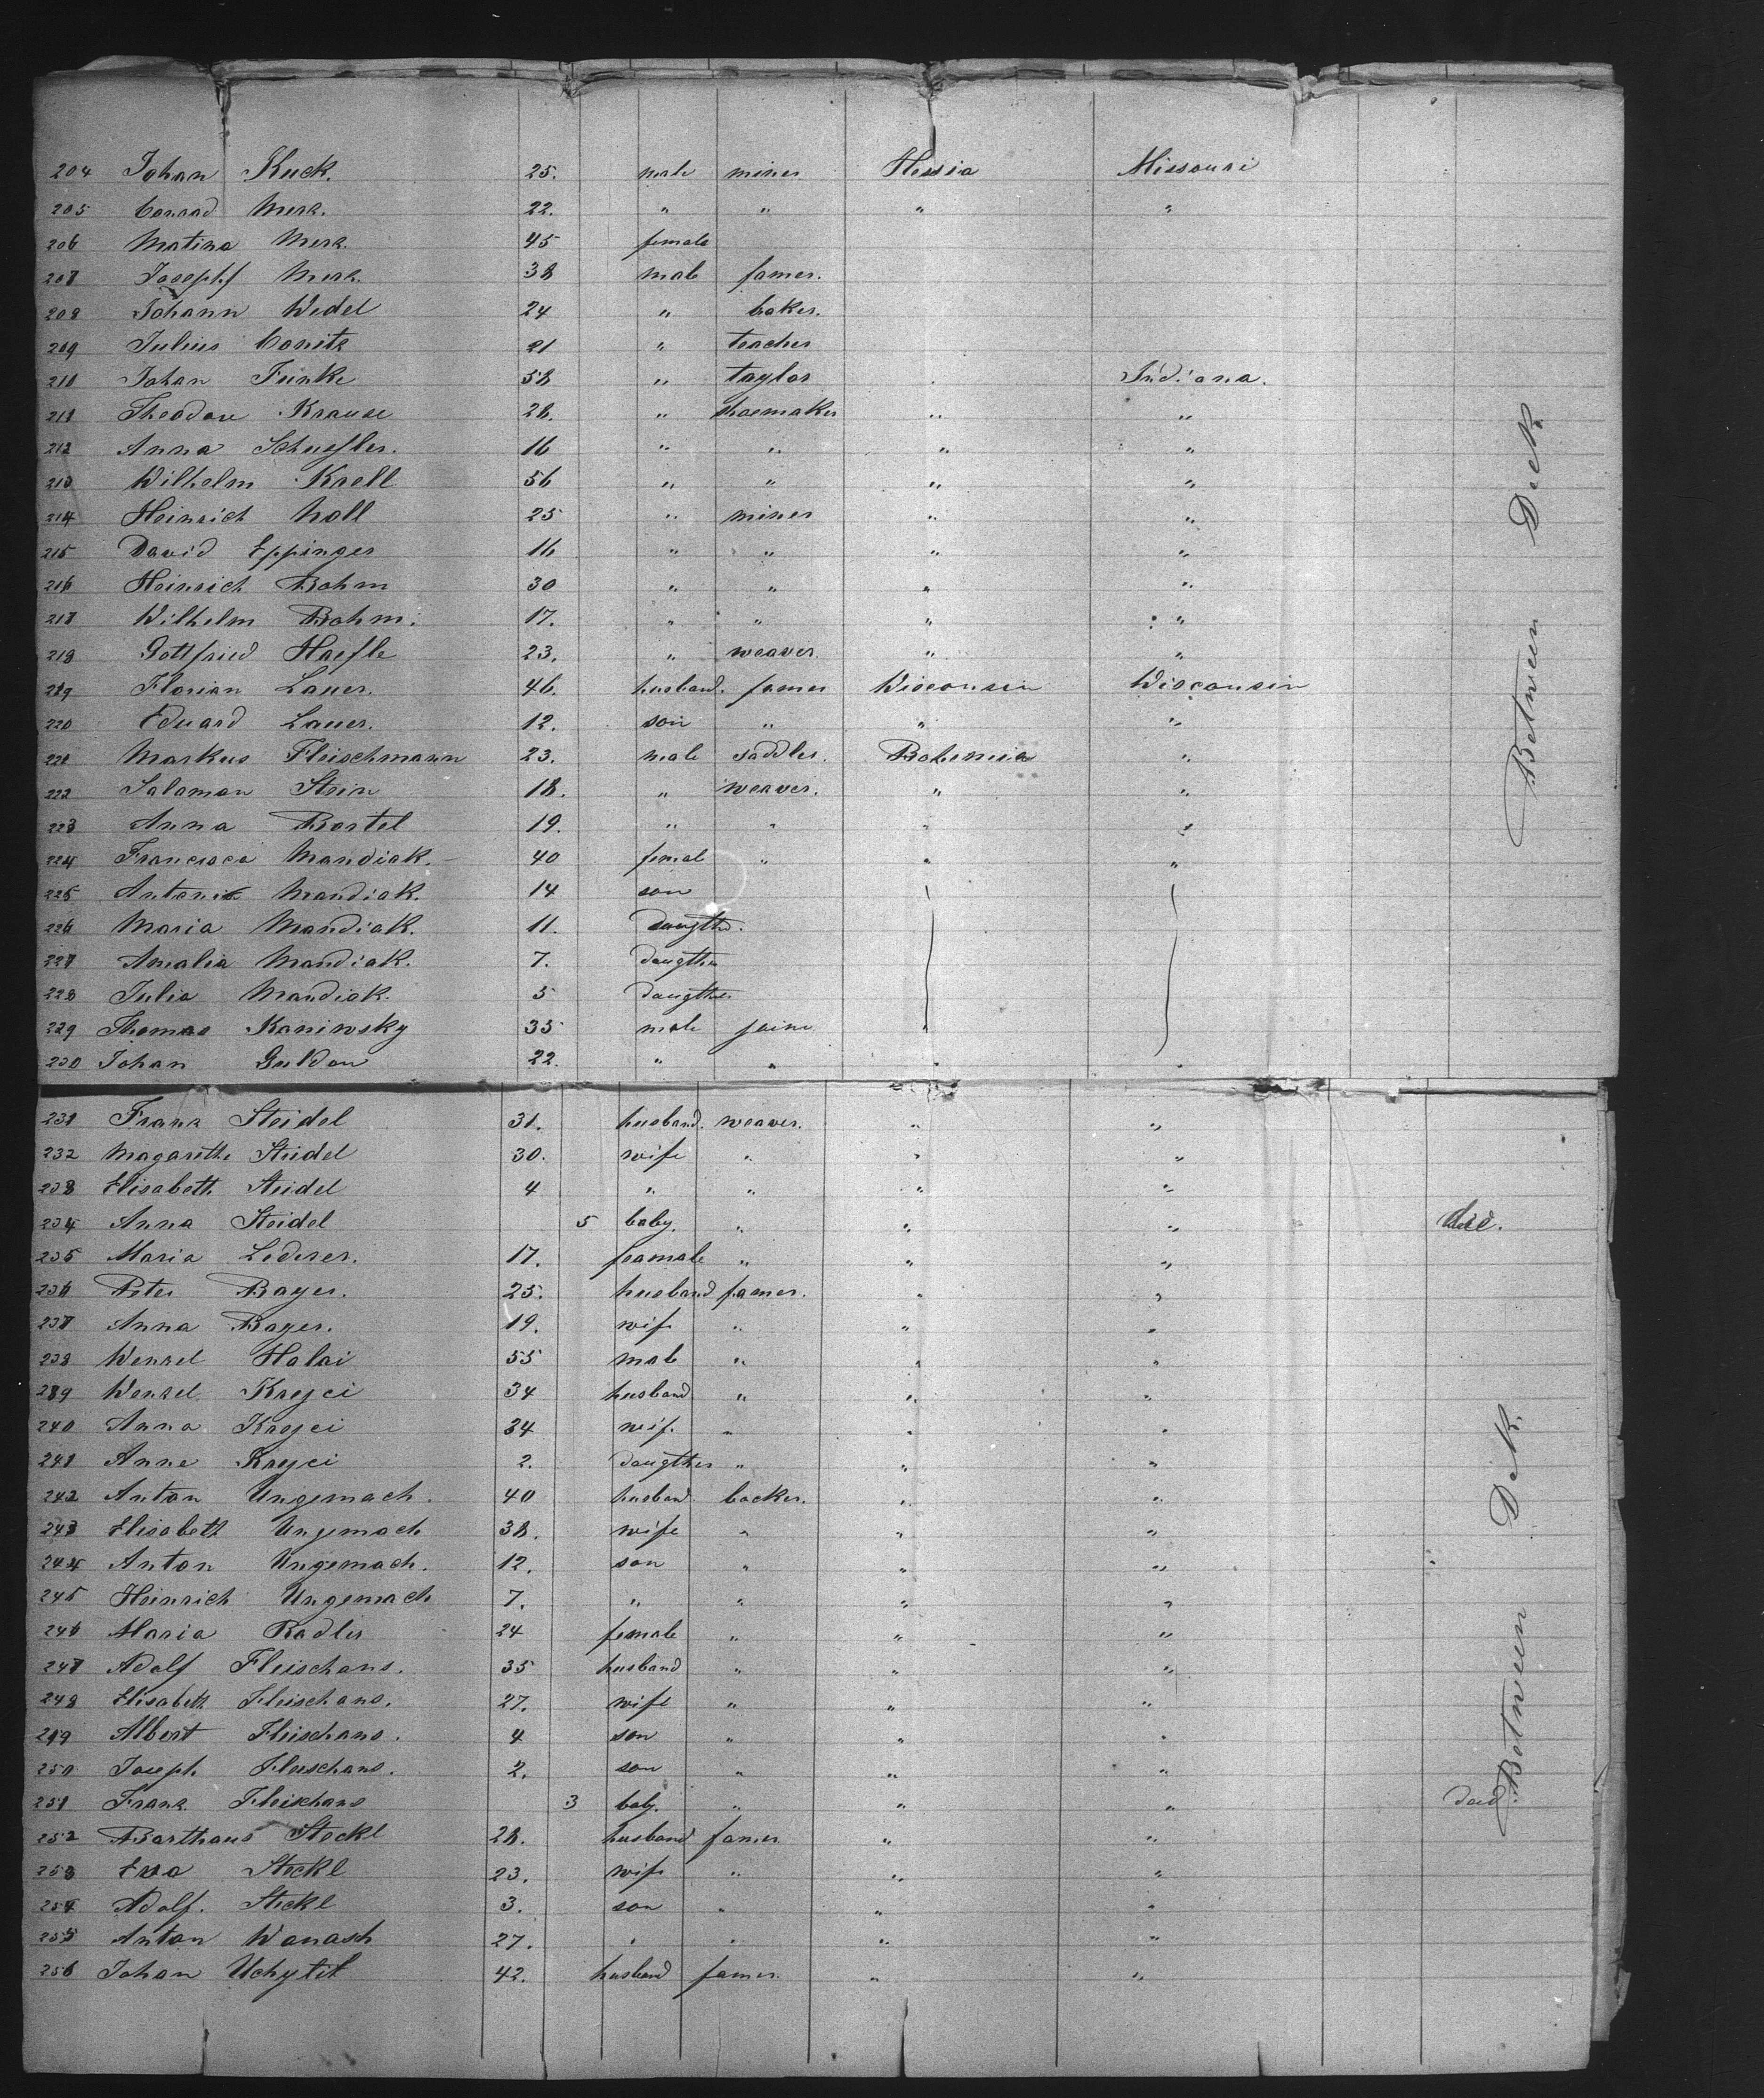 204 Johan Kuck. 25. male miner Hessia Missouri
205 Conrad Merz. 22. " " " "
206 Matina Merz. 45 female
207 Joseph Merz. 38 male famer.
208 Johann Wedel 24 " baker.
209 Julius Conitz 21 " teacher
210 Johan Funke 58 " taylor Indiana.
211 Theodore Krause 28. " shoemaker " "
212 Anna Schussler. 16 " " " "
213 Wilhelm Krell 56 " " " "
214 Heinrich Noll 25 " miner " "
215 David Eppinger 16 " " " "
216 Heinrich Bohm 30 " " " "
217 Wilhelm Bohm. 17. " " " "
218 Gottfried Haefle 23. " weaver. " "
219 Florian Lauer. 46. husband. famer Wisconsin Wisconsin
220 Eduard Lauer. 12. son " " "
221 Markus Fleischmann 23. male saddler. Bohemia "
222 Salamon Stein 18. " weaver. " "
223 Anna Bartel 19. " " " "
224 Francisca Mandiak. 40 femal " " "
225 Mandiak. 14 son
226 Maria Mandiak. 11. daugther.
227 Amalia Mandiak. 7. daugther
228 Julia Mandiak. 5 daugther
229 Thomas Kaniwsky 35 male "
230 Johan Guldan 22. " " " "
231 Franz Steidel 31. husband. weaver. " "
232 Magarethe Steidel 30. wife " " "
233 Elisabeth Steidel 4 " " " "
234 Anna Steidel 5 baby. " " " die.
235 Maria Lederer. 17. feamale " " "
236 Peter Bayer. 25. husband famer. " "
237 Anna Bayer. 19. wife " " "
238 Wenzel Holai 55 male " " "
239 Wenzel Krejci 34 husband " " "
240 Anna Krejci 34 wife " " "
241 Anne Krejci 2. daugther " " "
242 Anton Ungemach. 40 husband backer. " "
243 Elisabeth Ungemach 38. wife " " "
244 Anton Ungemach. 12. son " " "
245 Heinrich Ungemach 7. " " " "
246 Maria Radler 24 female " " "
247 Adolf Fleischans. 35 husband " " "
248 Elisabeth Fleischans. 27. wife " " "
249 Albert Fleischans. 4 son " " "
250 Joseph Fleischans. 2. son " " "
251 Franz Fleischans 3 baby. " " " ded.
252 Barthaus Steckl 28. husband famer " "
253 Eva Steckl 23. wife " " "
254 Adolf. Steckl 3. son " " "
255 Anton Wanasch 27. " " " "
256 Johan Uchytil 42. husband famer. " "
Between Deck
Between Deck.